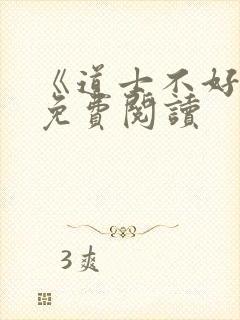 《道士不好
免費閱讀
3爽